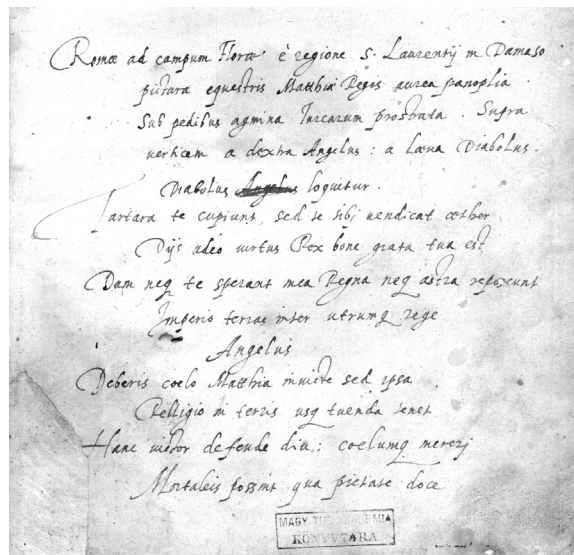 Romæ ad campum Floræ è regione S. Laurentij in Damaso
pictura equestris Matthiæ Regis aurea panoplia.
Sub pedibus agmina Turcarum prostrata. Supra
verticem a dextra Angelus: a læva Diabolus.
Diabolus Angelus loquitur.
Tartara te cupiunt, sed te sibi uendicat æther
Dijs adeo uirtus Rex bone grata tua est
Dam neq te sperant mea Regna neq astra reposcunt
Imperio terras inter utrumq rege
Angelus
Deberis coelo Matthia inuicte sed ipsa
Relligio in terris usq tuenda tenet
Hanc defende diu: coelumq mereri
Mortaleis possint qua pietate doce
MAGY. TUD. AKADEMIA
KÖNYVTÁRA